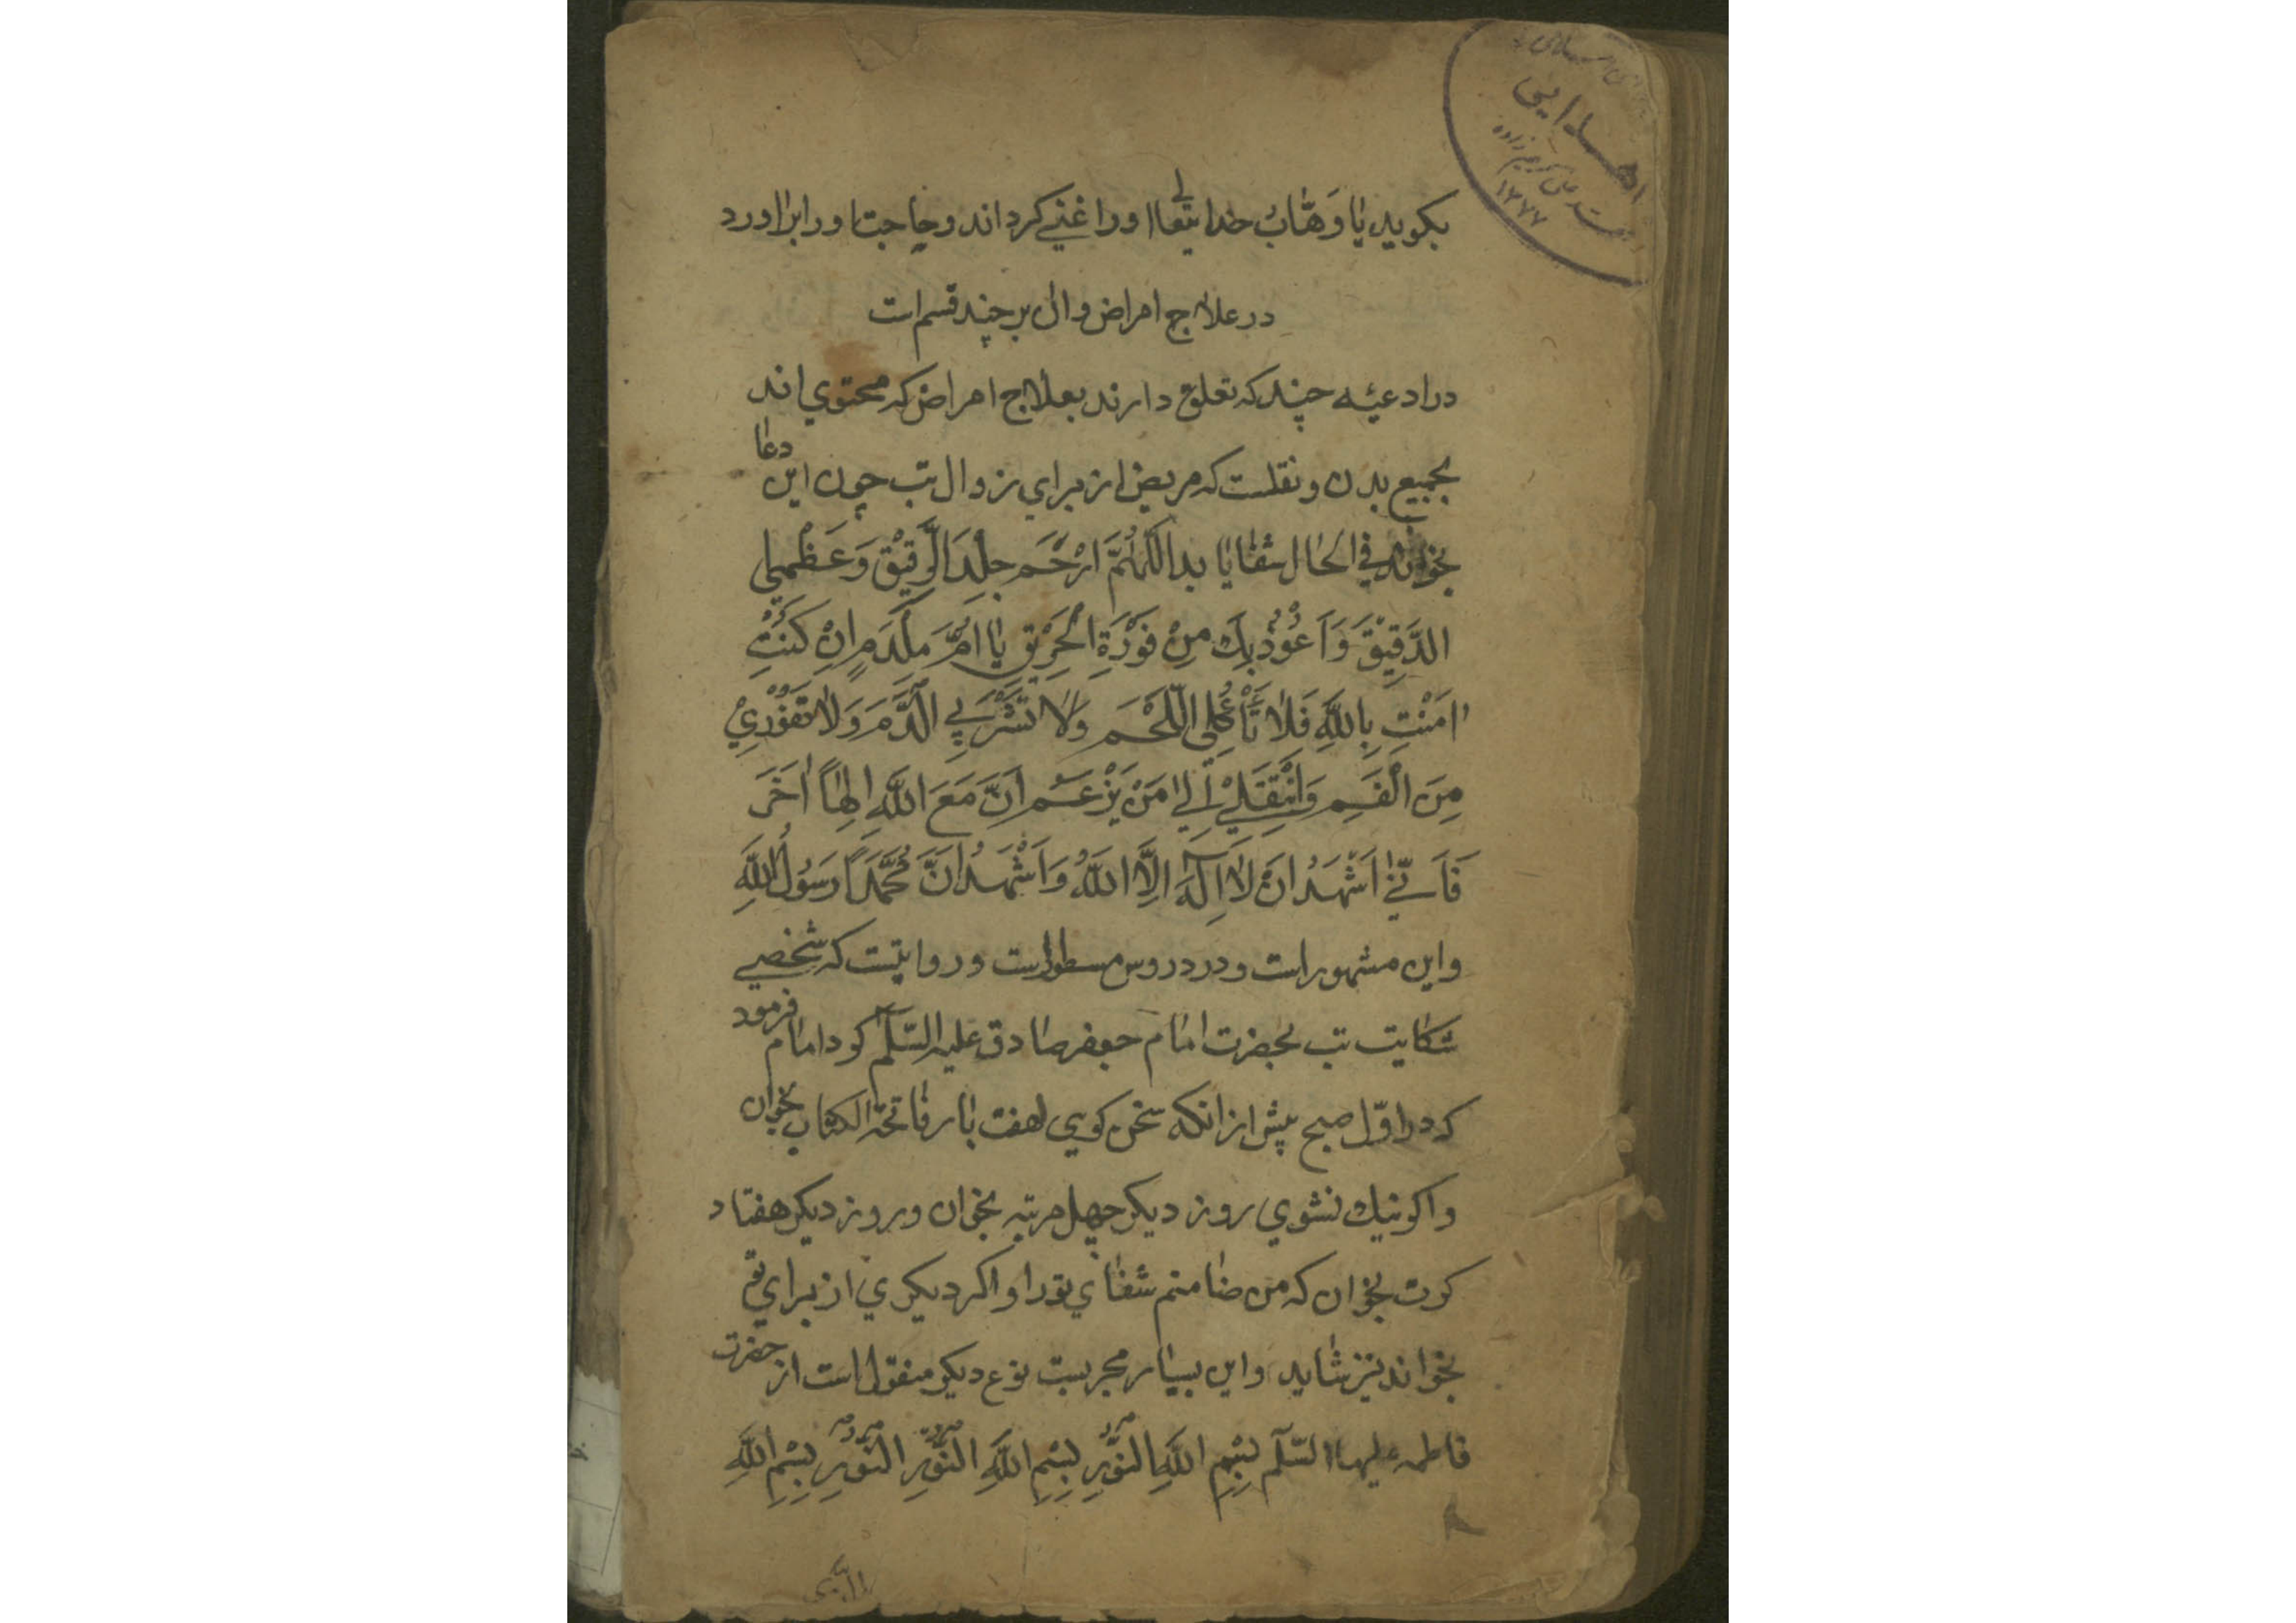 اهدایی
۱۳۷۷
بکوید یا وَهّابُ خدایتعالی اورا غنی کرداند و حاجت اورا براورد
در علاج امراض وان بر چند قسم است
در ادعیئه چند که تعلق دارند بعلاج امراض که محتوی اند
بجمیع بدن و نقلست که مریض از برای زوال تب چون این دعا
بخواند فی الحال شفا یابد اَللّهُمَّ ارْحَم جِلْدیَ الرَّقیْقَ وَعَظْمِیَ
الدَّقِیْقَ وَاَعُوْذُ بِكَ مِنْ فَوْرَةِ الْحَرِیْقِ یا اُمَّ مِلْدَمٍ اِنْ کُنْتِ
امَنْتِ بِاللّهِ فَلا تَأْکُلِی اللَّحْمَ وَلا تَشْرَبِی الدَّمَ وَلا تَفُوْرِیْ
مِنَ الْفَمِ وَانْتَقِلِیْ اِلی مَنْ یَزْعَمُ اَنَّ مَعَ اللّهِ اِلهًا اخَرَ
فَاَنّی اَشْهَدُ اَنْ لا اِلهَ اِلَّا اللّهُ وَاَشْهَدُ اَنَّ مُحَمَّدًا رَسُولُ اللّهِ
واین مشهور است و در دروس مسطور است و روایتست که شخصی
شکایت تب بحضرت امام جعفر صادق علیه السّلم کرد امام فرمود
که در اوّل صبح پیش از انکه سخن کویی هفت بار فاتحة الکتاب بخوان
واکر نیك نشوی روز دیکر چهل مرتبه بخوان و روز دیکر هفتاد
کرت بخوان که من ضامنم شفای تورا و اکر دیکری از برای تو
بخواند نیز شاید و این بسیار مجربست نوع دیکر منقول است از حضرت
فاطمه علیها السّلم بِسْمِ اللّهِ النُّوْرِ بِسْمِ اللّهِ النُّوْرِ النُّوْرِ بِسْمِ اللّهِ